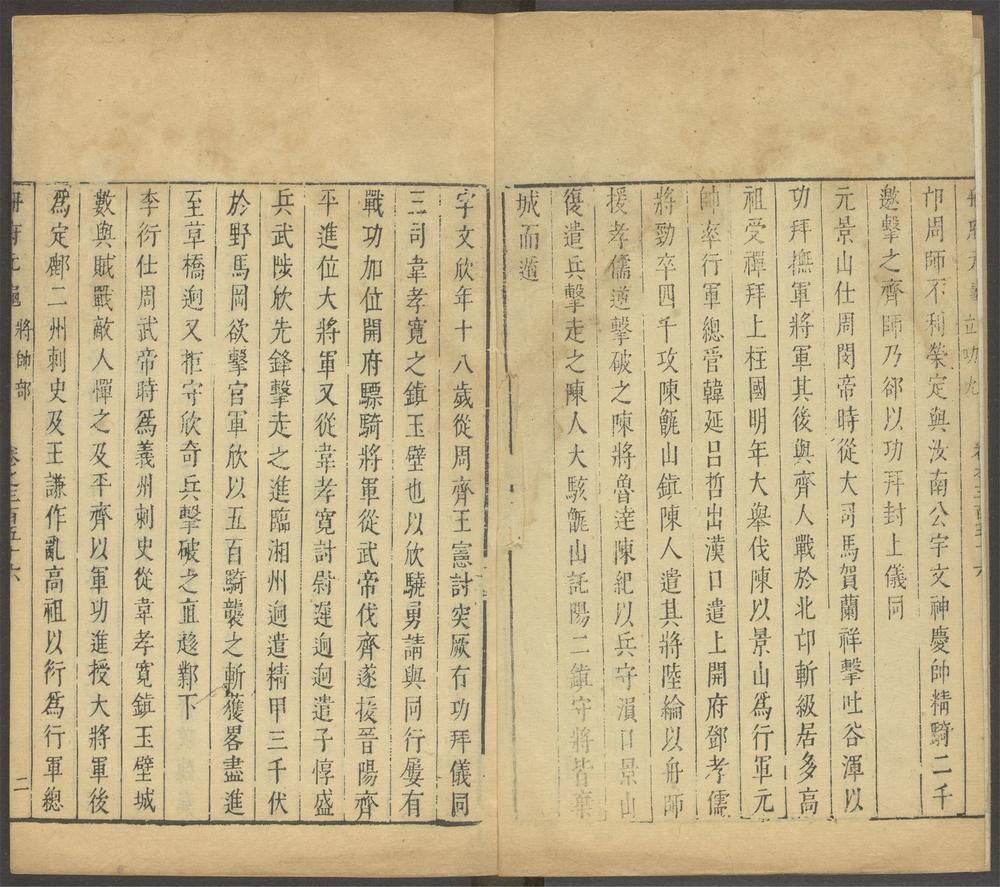 冊府元龜 立功九 卷之三百五十六
邙周師不利榮定與汝南公宇文神慶帥精騎二千
邀擊之齊師乃郤以功拜封上儀同
元景山仕周閔帝時從大司馬賀蘭祥擊吐谷渾以
功拜撫軍將軍其後與齊人戰於北邙斬級居多高
祖受禪拜上柱國明年大舉伐陳以景山爲行軍元
帥率行軍總管韓延呂哲出漢口遣上開府鄧孝儒
將勁卒四千攻陳甑山鎮陳人遣其將陸綸以舟師
援孝儒逆擊破之陳將魯達陳紀以兵守溳口景山
復遣兵擊走之陳人大駭甑山沌陽二鎮守將皆棄
城而遁
宇文欣年十八歲從周齊王憲討突厥有功拜儀同
三司韋孝寛之鎮玉壁也以欣驍勇請與同行屢有
戰功加位開府驃騎將軍從武帝伐齊遂拔晉陽齊
平進位大將軍又從韋孝寛討尉遲迥迥遣子惇盛
兵武陟欣先鋒擊走之進臨湘州迥遣精甲三千伏
於野馬岡欲擊官軍欣以五百騎襲之斬獲畧盡進
至草橋迥又拒守欣奇兵擊破之直趍鄴下
李衍仕周武帝時爲義州刺史從韋孝寛鎮玉壁城
數與賊戰敵人憚之及平齊以軍功進授大將軍後
爲定鄜二州刺史及王謙作亂高祖以衍爲行軍總
冊府元龜 將帥部 卷之三百五十六 二